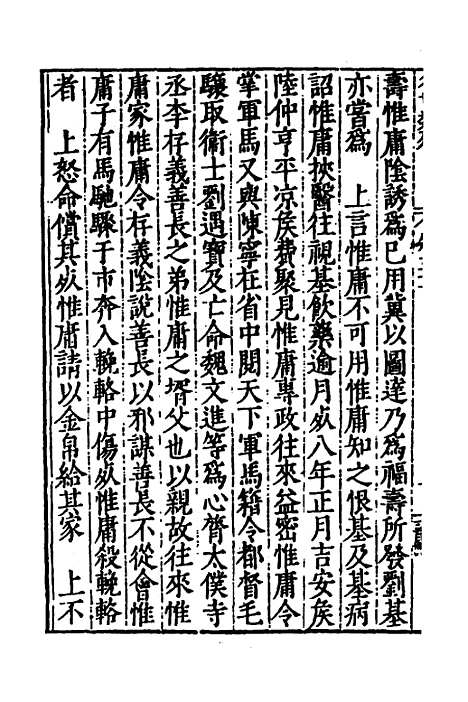 壽惟庸陰誘爲已用冀以圖達乃爲福壽所發劉基
亦嘗爲　上言惟庸不可用惟庸知之恨基及基病
詔惟庸挾醫往視基飲藥逾月㱔八年正月吉安矦
陸仲亨平凉矦費聚見惟庸專政往來益密惟庸令
掌軍馬又與陳寧在省中閱天下軍馬籍令都督毛
驤取衛士劉遇寶及亡命魏文進等爲心膂太僕寺
丞李存義善長之弟惟庸之壻父也以親故往來惟
庸家惟庸令存義陰說善長以邪謀善長不從會惟
庸子有馬馳驟于市奔入輓輅中傷㱔惟庸殺輓輅
者　上怒命償其㱔惟庸請以金帛給其家　上不